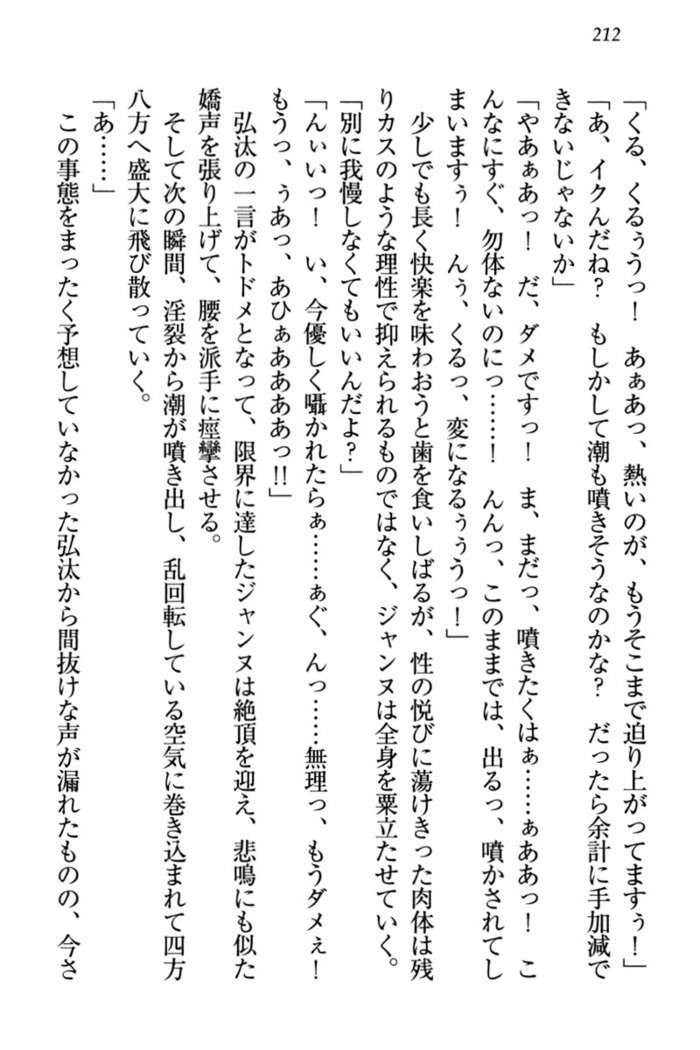 212
「くる、くるぅうっ！　あぁあっ、熱いのが、もうそこまで迫り上がってますぅ！」
「あ、イクんだね？　もしかして潮も噴きそうなのかな？　だったら余計に手加減で
きないじゃないか」
「やあぁあっ！　だ、ダメですっ！　ま、まだっ、噴きたくはぁ……ぁああっ！　こ
んなにすぐ、勿体ないのにっ……！　んんっ、このままでは、出るっ、噴かされてし
まいますぅ！　んぅ、くるっ、変になるぅぅうっ！」
少しでも長く快楽を味わおうと歯を食いしばるが、性の悦びに蕩けきった肉体は残
りカスのような理性で抑えられるものではなく、ジャンヌは全身を粟立たせていく。
「別に我慢しなくてもいいんだよ？」
「んぃいっ！　い、今優しく囁かれたらぁ……ぁぐ、んっ……無理っ、もうダメぇ！
もうっ、ぅあっ、あひぁああああっ!!」
弘汰の一言がトドメとなって、限界に達したジャンヌは絶頂を迎え、悲鳴にも似た
嬌声を張り上げて、腰を派手に痙攣させる。
そして次の瞬間、淫裂から潮が噴き出し、乱回転している空気に巻き込まれて四方
八方へ盛大に飛び散っていく。
「あ……」
この事態をまったく予想していなかった弘汰から間抜けな声が漏れたものの、今さ